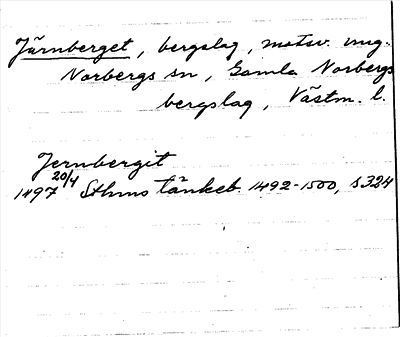 Järnberget, bergslag, motsv. ung.
Norbergs sn, Gamla Norbergs
bergslag, Västm. l.
Jernbergit
1497 20/4 Sthms tänkeb. 1492-1500, s 324